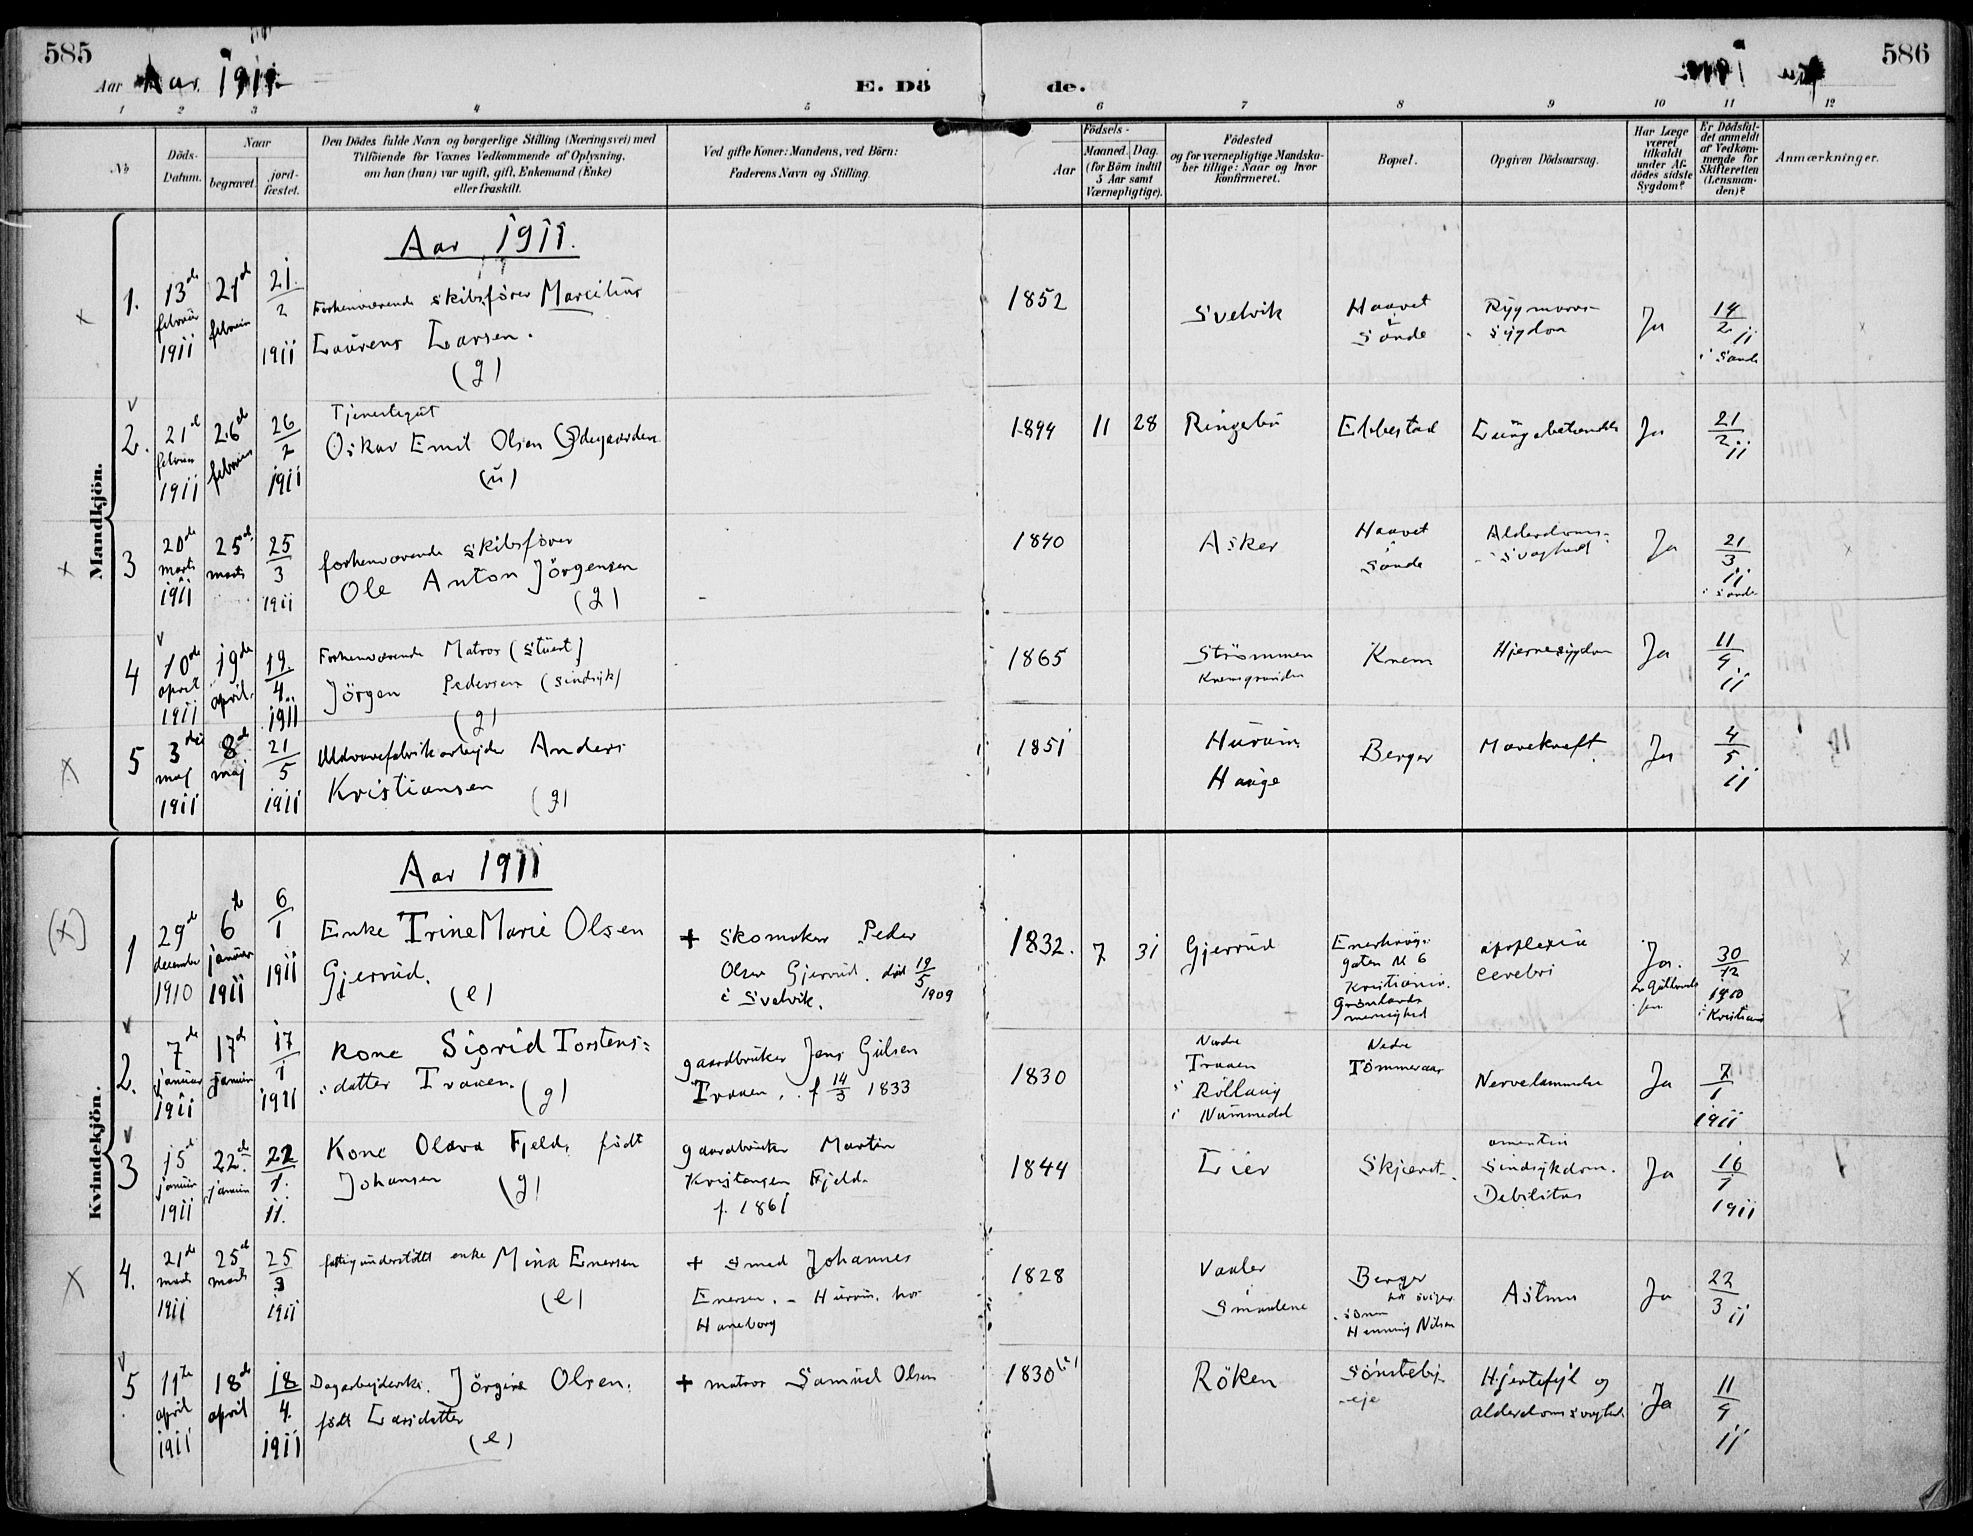 585
586
Aar Aar. 1911
E. Dö
de.
1 2 3 4 5 6 7 8 9 10 11 12
№
Döds-
Datum.
Naar
begravet.
jord-
fæstet.
Den Dödes fulde Navn og borgerlige Stilling (Næringsvei) med
Tilföiende for Voxnes Vedkommende af Oplysning,
om han (hun) var ugift, gift, Enkemand (Enke)
eller fraskilt.
Ved gifte Koner: Mandens, ved Börn:
Faderens Navn og Stilling.
Födsels-
Aar
Maaned. Dag.
(for Börn indtil
5 Aar samt
Værnepligtige).
Födested
og for værnepligtige Mandska-
ber tillige: Naar og hvor
konfirmeret.
Bopæl.
Opgiven Dödsaarsag.
Har Læge
været
tilkaldt
under Af-
dödes sidste
Sygdom?
Er Dödsfal-
det anmeldt
af Vedkom-
mende for
Skifteretten
(Lensman-
den)?
Anmærkninger.
Mandkjön.
Aar 1911.
1. 13de
februar
1911
21de
februar
21.
2
1911
Forhenværende skibsförer Marcilius
Laurens Larsen.
(g)
1852
Svelvik
Haavet
i
Sande
Rygmarvs-
sygdom
Ja
14
2 11
i Sande
2. 21de
februar
1911
26de
februar
26
2
1911
Tjenestegut
Oskar Emil Olsen Ødegaarden
(u)
1894 11 28
Ringebu
Ebbestad
Lungebetændelse
Ja
21
2 11
3 20de
marts
1911
25de
marts
25
3
1911
forhenværende skibsförer
Ole Anton Jörgensen
(g)
1840
Asker
Haavet
i
Sande
Alderdoms-
svaghed
Ja
21
3.
11
i Sande
4 10de
april
1911
19de
april.
19.
4.
1911
Forhenværende Matros (stuert)
Jörgen Pedersen (sindsyk)
(g)
1865
Strömmen
Knemsgrunden
Knem
Hjernesygdom
Ja
11
4.
11
5 3die
maj
1911
8de
maj
21
5
1911
Uldvarefabrikarbejder Anders
Kristiansen
(g)
1851
Hurum,
Hauge
Berger
Mavekræft.
Ja
4
5.
11
Kvindekjön.
Aar 1911
1 29de
december
1910
6te
januar
1911
6
1
1911
Enke Trine Marie Olsen
Gjerrud.
(e)
+ Skomaker Peder
Olsen Gjerrud. död 19
5
i Svelvik. 1909
1832. 7 31
Gjerrud
Enerhaug-
gaten № 6
Kristiania.
Grönlands
menighed
apoplexia
cerebri
Ja.
30
12
1910
i Kristiania
2. 7de
januar
1911
17de
januar
17
1
1911
Kone Sigrid Torstens-
datter Traaen.
(g)
gaardbruker Jens Gulsen
Traaen, f 14
3 1833
1830
Nordre
Traaen
i Rollaug
i Nummedal
Nedre
Tömmeraas
Nervelammelse
Ja
7
1
1911
3 15de
januar
1911
22de
januar
22
1.
11.
Kone Olava Fjeld, födt
Johansen (g)
gaardbruker Martin
Kristensen Fjeld.
f. 1861
1844
Lier
Skjæret.
amentia
Sindsykdom.
Debilitas
Ja
16
1
1911
4. 21de
marts
1911
25de
marts
25
3
1911
fattigunderstöttet enke Mina Enersen
(e)
+ smed Johannes
Enersen. - Hurum. hos
Haneborg
1828
Vaaler
i
Smaalene
Berger
hos sviger-
sönen
Henning Nilsen
Astma
Ja
22
3 11
5 11te
april
1911
18de
april
18
4.
1911
Dagarbejderske. Jörgine Olsen.
födt Larsdatter
(e)
+ matros Samuel Olsen
1830
Röken
Sönsteby-
eje
Hjertefejl og
alderdomssvaghed.
Ja
11
4
11